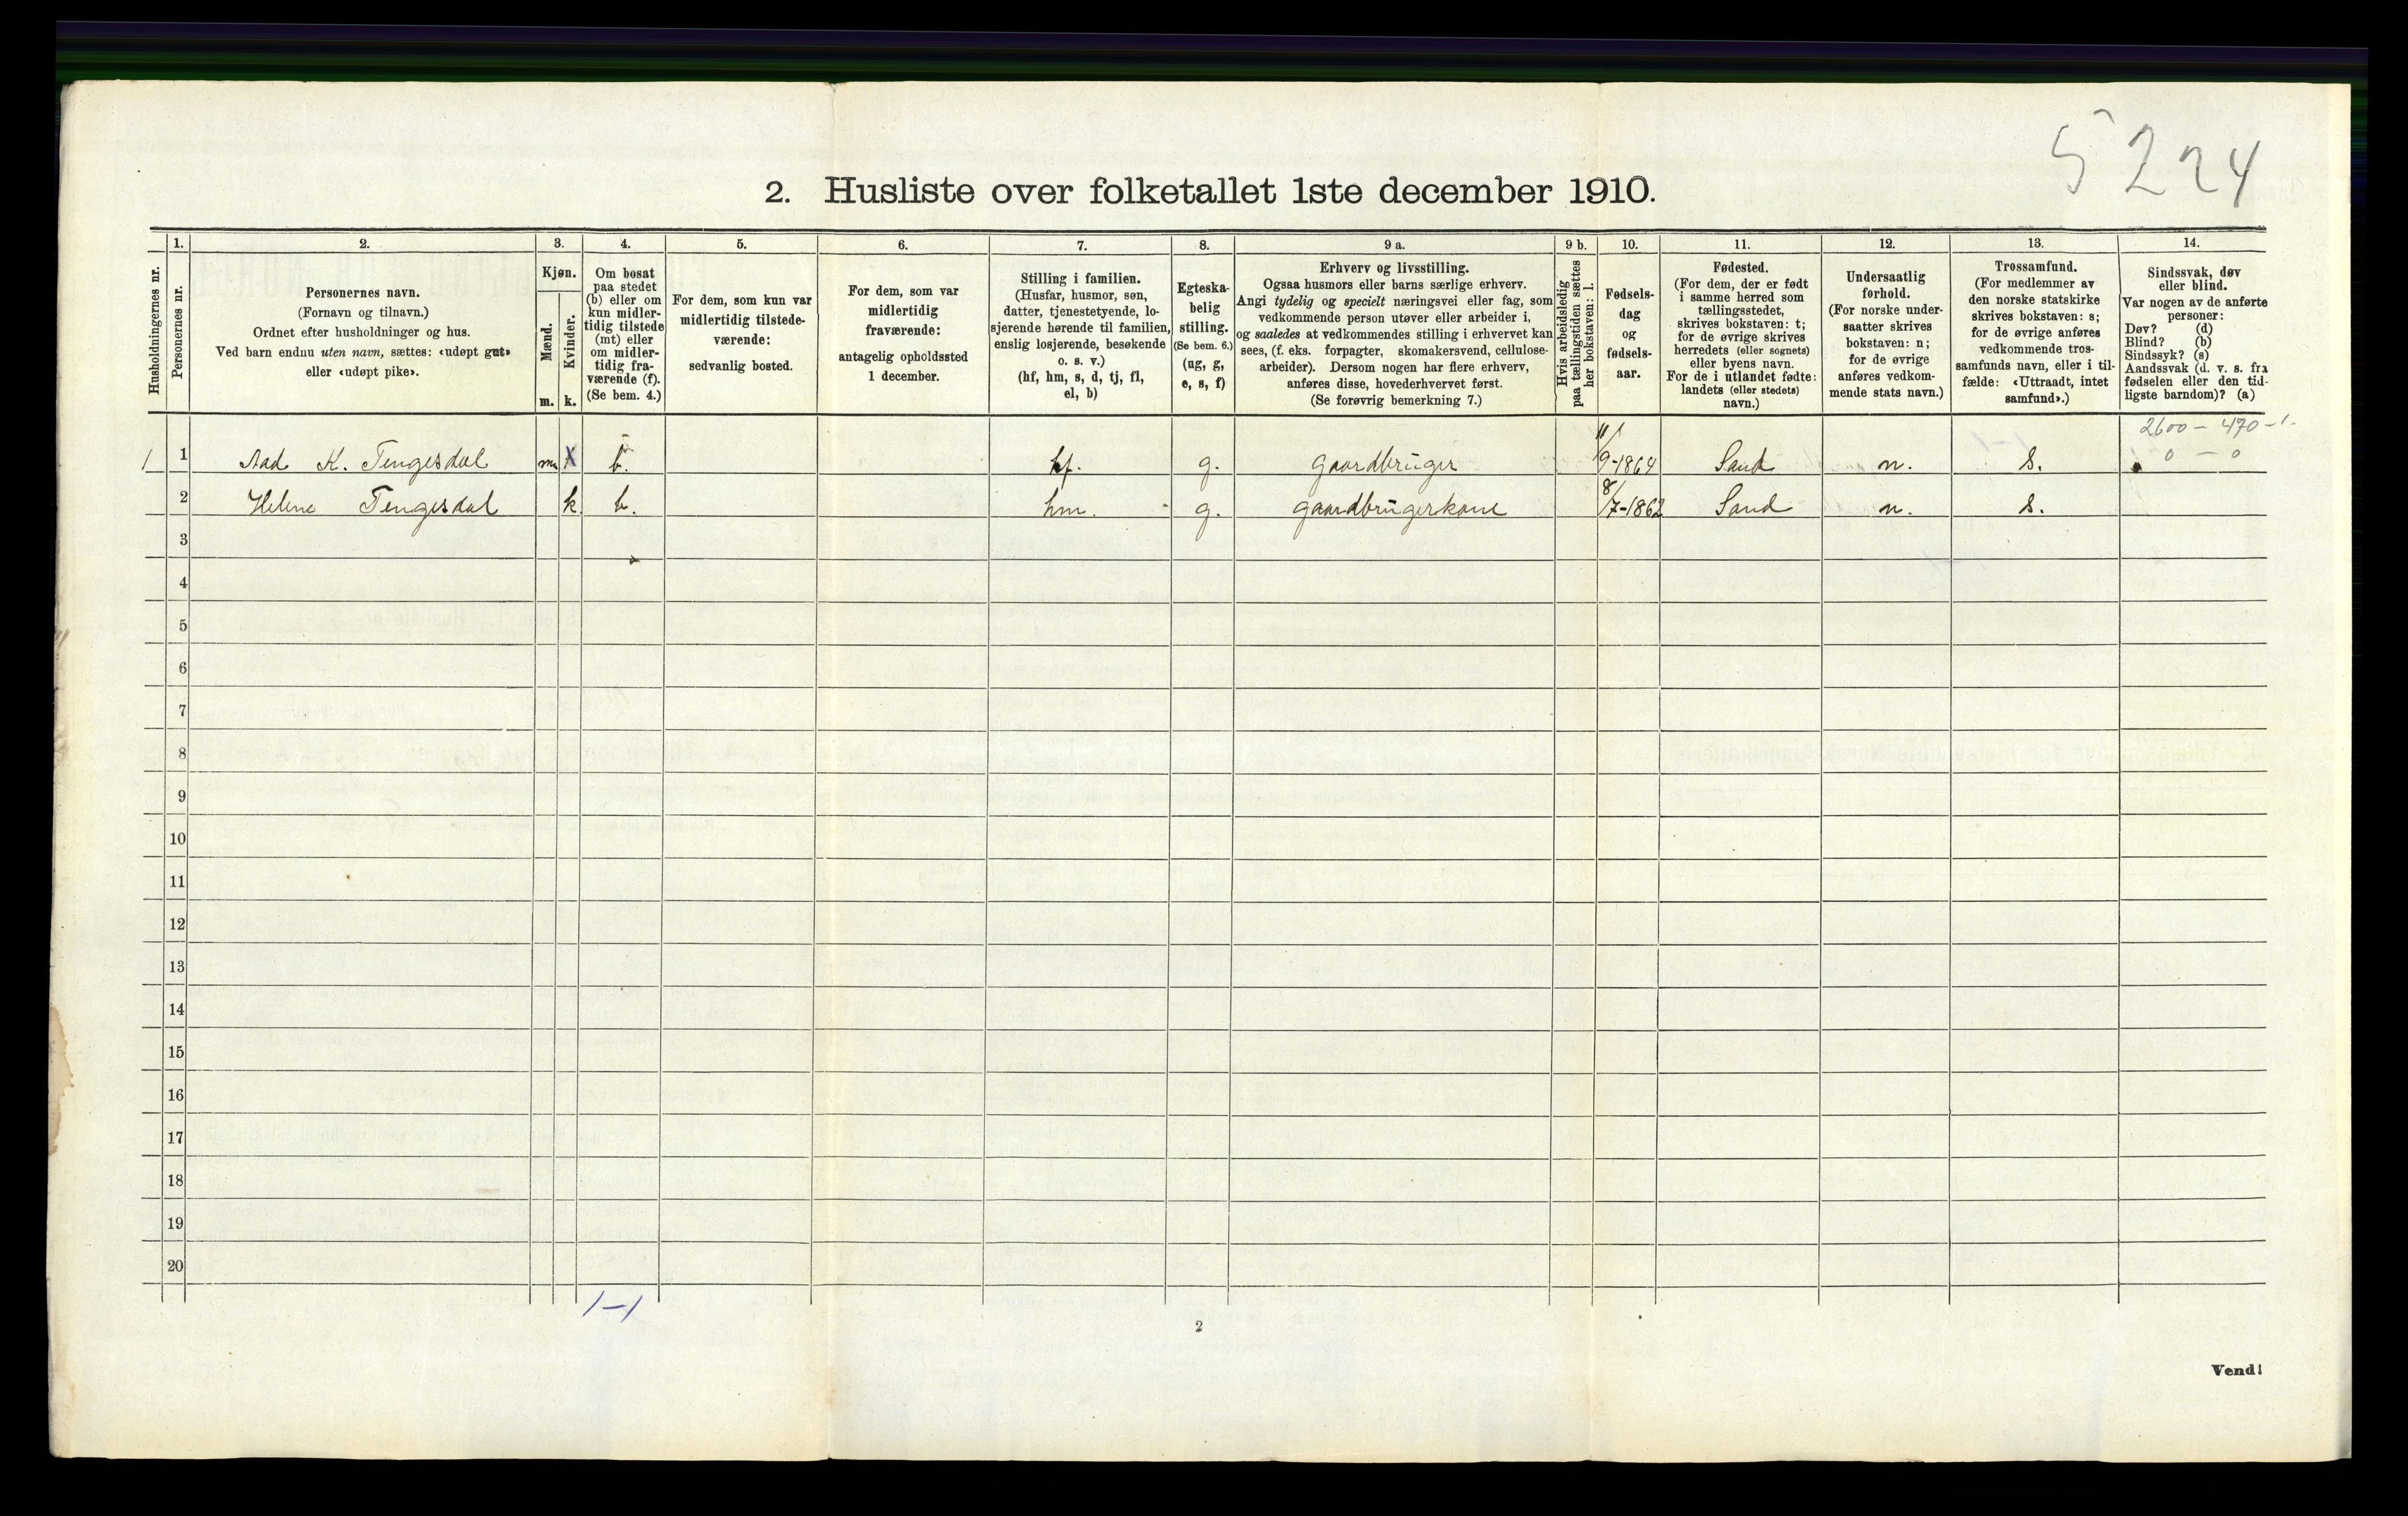 5224
2. Husliste over folketallet 1ste december 1910.
Husholdningernes nr.
1.
Personernes nr.
2.
Personernes navn.
(Fornavn og tilnavn.)
Ordnet efter husholdninger og hus.
Ved barn endnu uten navn, sættes: «udøpt gut»
eller «udøpt pike».
3.
Kjøn.
Mænd.
Kvinder.
m. k.
4.
Om bosat
paa stedet
(b) eller om
kun midler-
tidig tilstede
(mt) eller
om midler-
tidig fra-
værende (f).
(Se bem. 4.)
5.
For dem, som kun var
midlertidig tilstede-
værende:
sedvanlig bosted.
6.
For dem, som var
midlertidig
fraværende:
antagelig opholdssted
1 december.
7.
Stilling i familien.
(Husfar, husmor, søn,
datter, tjenestetyende, lo-
sjerende hørende til familien,
enslig losjerende, besøkende
o. s. v.)
(hf, hm, s, d, tj, fl,
el, b)
8.
Egteska-
belig
stilling.
(Se bem. 6.)
(ug, g,
e, s, f)
9 a.
Erhverv og livsstilling.
Ogsaa husmors eller barns særlige erhverv.
Angi tydelig og specielt næringsvei eller fag, som
vedkommende person utøver eller arbeider i,
og saaledes at vedkommendes stilling i erhvervet kan
sees, (f. eks. forpagter, skomakersvend, cellulose-
arbeider). Dersom nogen har flere erhverv,
anføres disse, hovederhvervet først.
(Se forøvrig bemerkning 7.)
9 b.
Hvis arbeidsledig
paa tællingstiden sættes
her bokstaven: l.
10.
Fødsels-
dag
og
fødsels-
aar.
11.
Fødested.
(For dem, der er født
i samme herred som
tællingsstedet,
skrives bokstaven: t;
for de øvrige skrives
herredets (eller sognets)
eller byens navn.
For de i utlandet fødte:
landets (eller stedets)
navn.)
12.
Undersaatlig
forhold.
(For norske under-
saatter skrives
bokstaven: n;
for de øvrige
anføres vedkom-
mende stats navn.)
13.
Trossamfund.
(For medlemmer av
den norske statskirke
skrives bokstaven: s;
for de øvrige anføres
vedkommende tros-
samfunds navn, eller i til-
fælde: «Uttraadt, intet
samfund».)
14.
Sindssvak, døv
eller blind.
Var nogen av de anførte
personer:
Døv? (d)
Blind? (b)
Sindssyk? (s)
Aandssvak (d. v. s. fra
fødselen eller den tid-
ligste barndom)? (a)
2600 – 470 – 1.
0 – 0
1 1 Aad K. Tengesdal m b. hf. g. gaardbruger 11/9-1864 Sand n. s.
2 Helene Tengesdal k b. hm. g. gaardbrugerkone 8/7-1862 Sand n. s.
3
4
5
6
7
8
9
10
11
12
13
14
15
16
17
18
19
20
1–1
2
Vend!